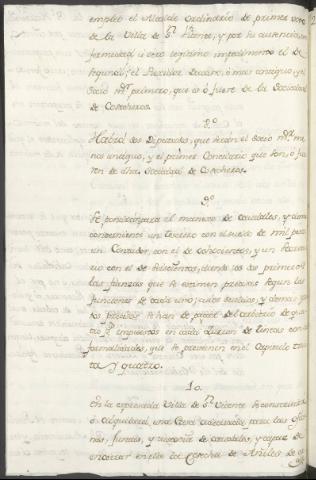 empleo el Alcalde ordinario de primer voto
de la Villa de Sn. Vicente, y por su ausencia, en-
fermedad ù otro legitimo impedimento el de
segundo; el Auxiliar Decano, ò mas antiguo, y el
Socio primero, que es ò fuere de la Sociedad
de Cosecheros.
8.º
Habrá dos Diputados, que serán el Socio me-
nos antiguo, y el primer Conciliario que son, ò fue-
ren de dha. Sociedad de Cosecheros.
9.º
Se para el manejo de caudales, y
conveniente un Tesorero con el sueldo de mil pesos
un Contador, con el de ochocientos, y un Secreta-
rio con el de seiscientos, dando los dos primeros
las fianzas que se estimen precisas segun las
funciones de cada uno; cuios sueldos, y demas gas-
tos se han de pagar del arbitrio de qua-
tro ps. impuestos en cada zurron de tintas con las
formalidades, que se previenen en el Capitulo trein-
ta y quatro.
10.
En la expresada Villa de Sn. Vicente se construirá
ò alquilará una Casa para las ofici-
nas, Juntas, y custodia de caudales, y capaz de
en ella la cosecha de Añiles de